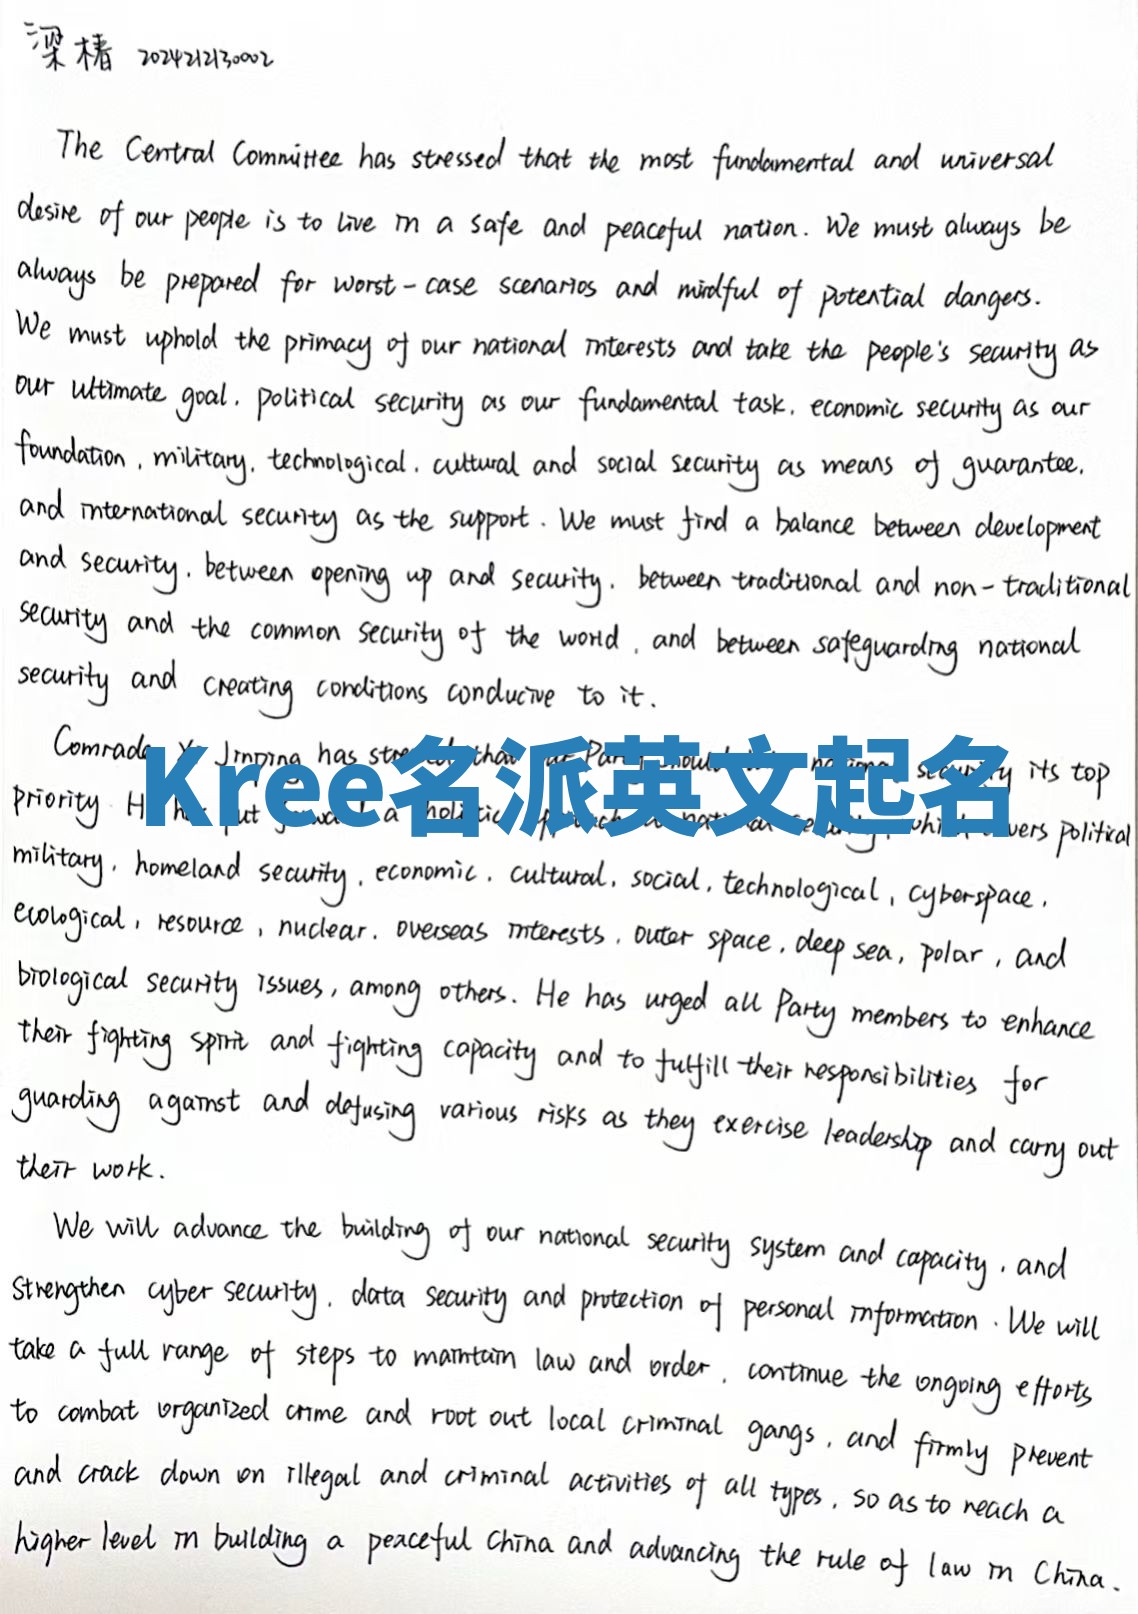 梁椿 2024212130002
The Central Committee has stressed that the most fundamental and universal
desire of our people is to live in a safe and peaceful nation. We must always be
always be prepared for worst-case scenarios and mindful of potential dangers.
We must uphold the primacy of our national interests and take the people's security as
our ultimate goal, political security as our fundamental task, economic security as our
foundation, military, technological, cultural and social security as means of guarantee,
and international security as the support. We must find a balance between development
and security, between opening up and security, between traditional and non-traditional
security and the common security of the world, and between safeguarding national
security and creating conditions conducive to it.
Comrade Jinping has that Party national security its top
Kree名派英文起名
priority. put forward a holistic political
military, homeland security, economic, cultural, social, technological, cyberspace,
ecological, resource, nuclear, overseas interests, outer space, deep sea, polar, and
biological security issues, among others. He has urged all Party members to enhance
their fighting spirit and fighting capacity and to fulfill their responsibilities for
guarding against and defusing various risks as they exercise leadership and carry out
their work.
We will advance the building of our national security system and capacity, and
strengthen cyber security, data security and protection of personal information. We will
take a full range of steps to maintain law and order, continue the ongoing efforts
to combat organized crime and root out local criminal gangs, and firmly prevent
and crack down on illegal and criminal activities of all types, so as to reach a
higher level in building a peaceful China and advancing the rule of law in China.